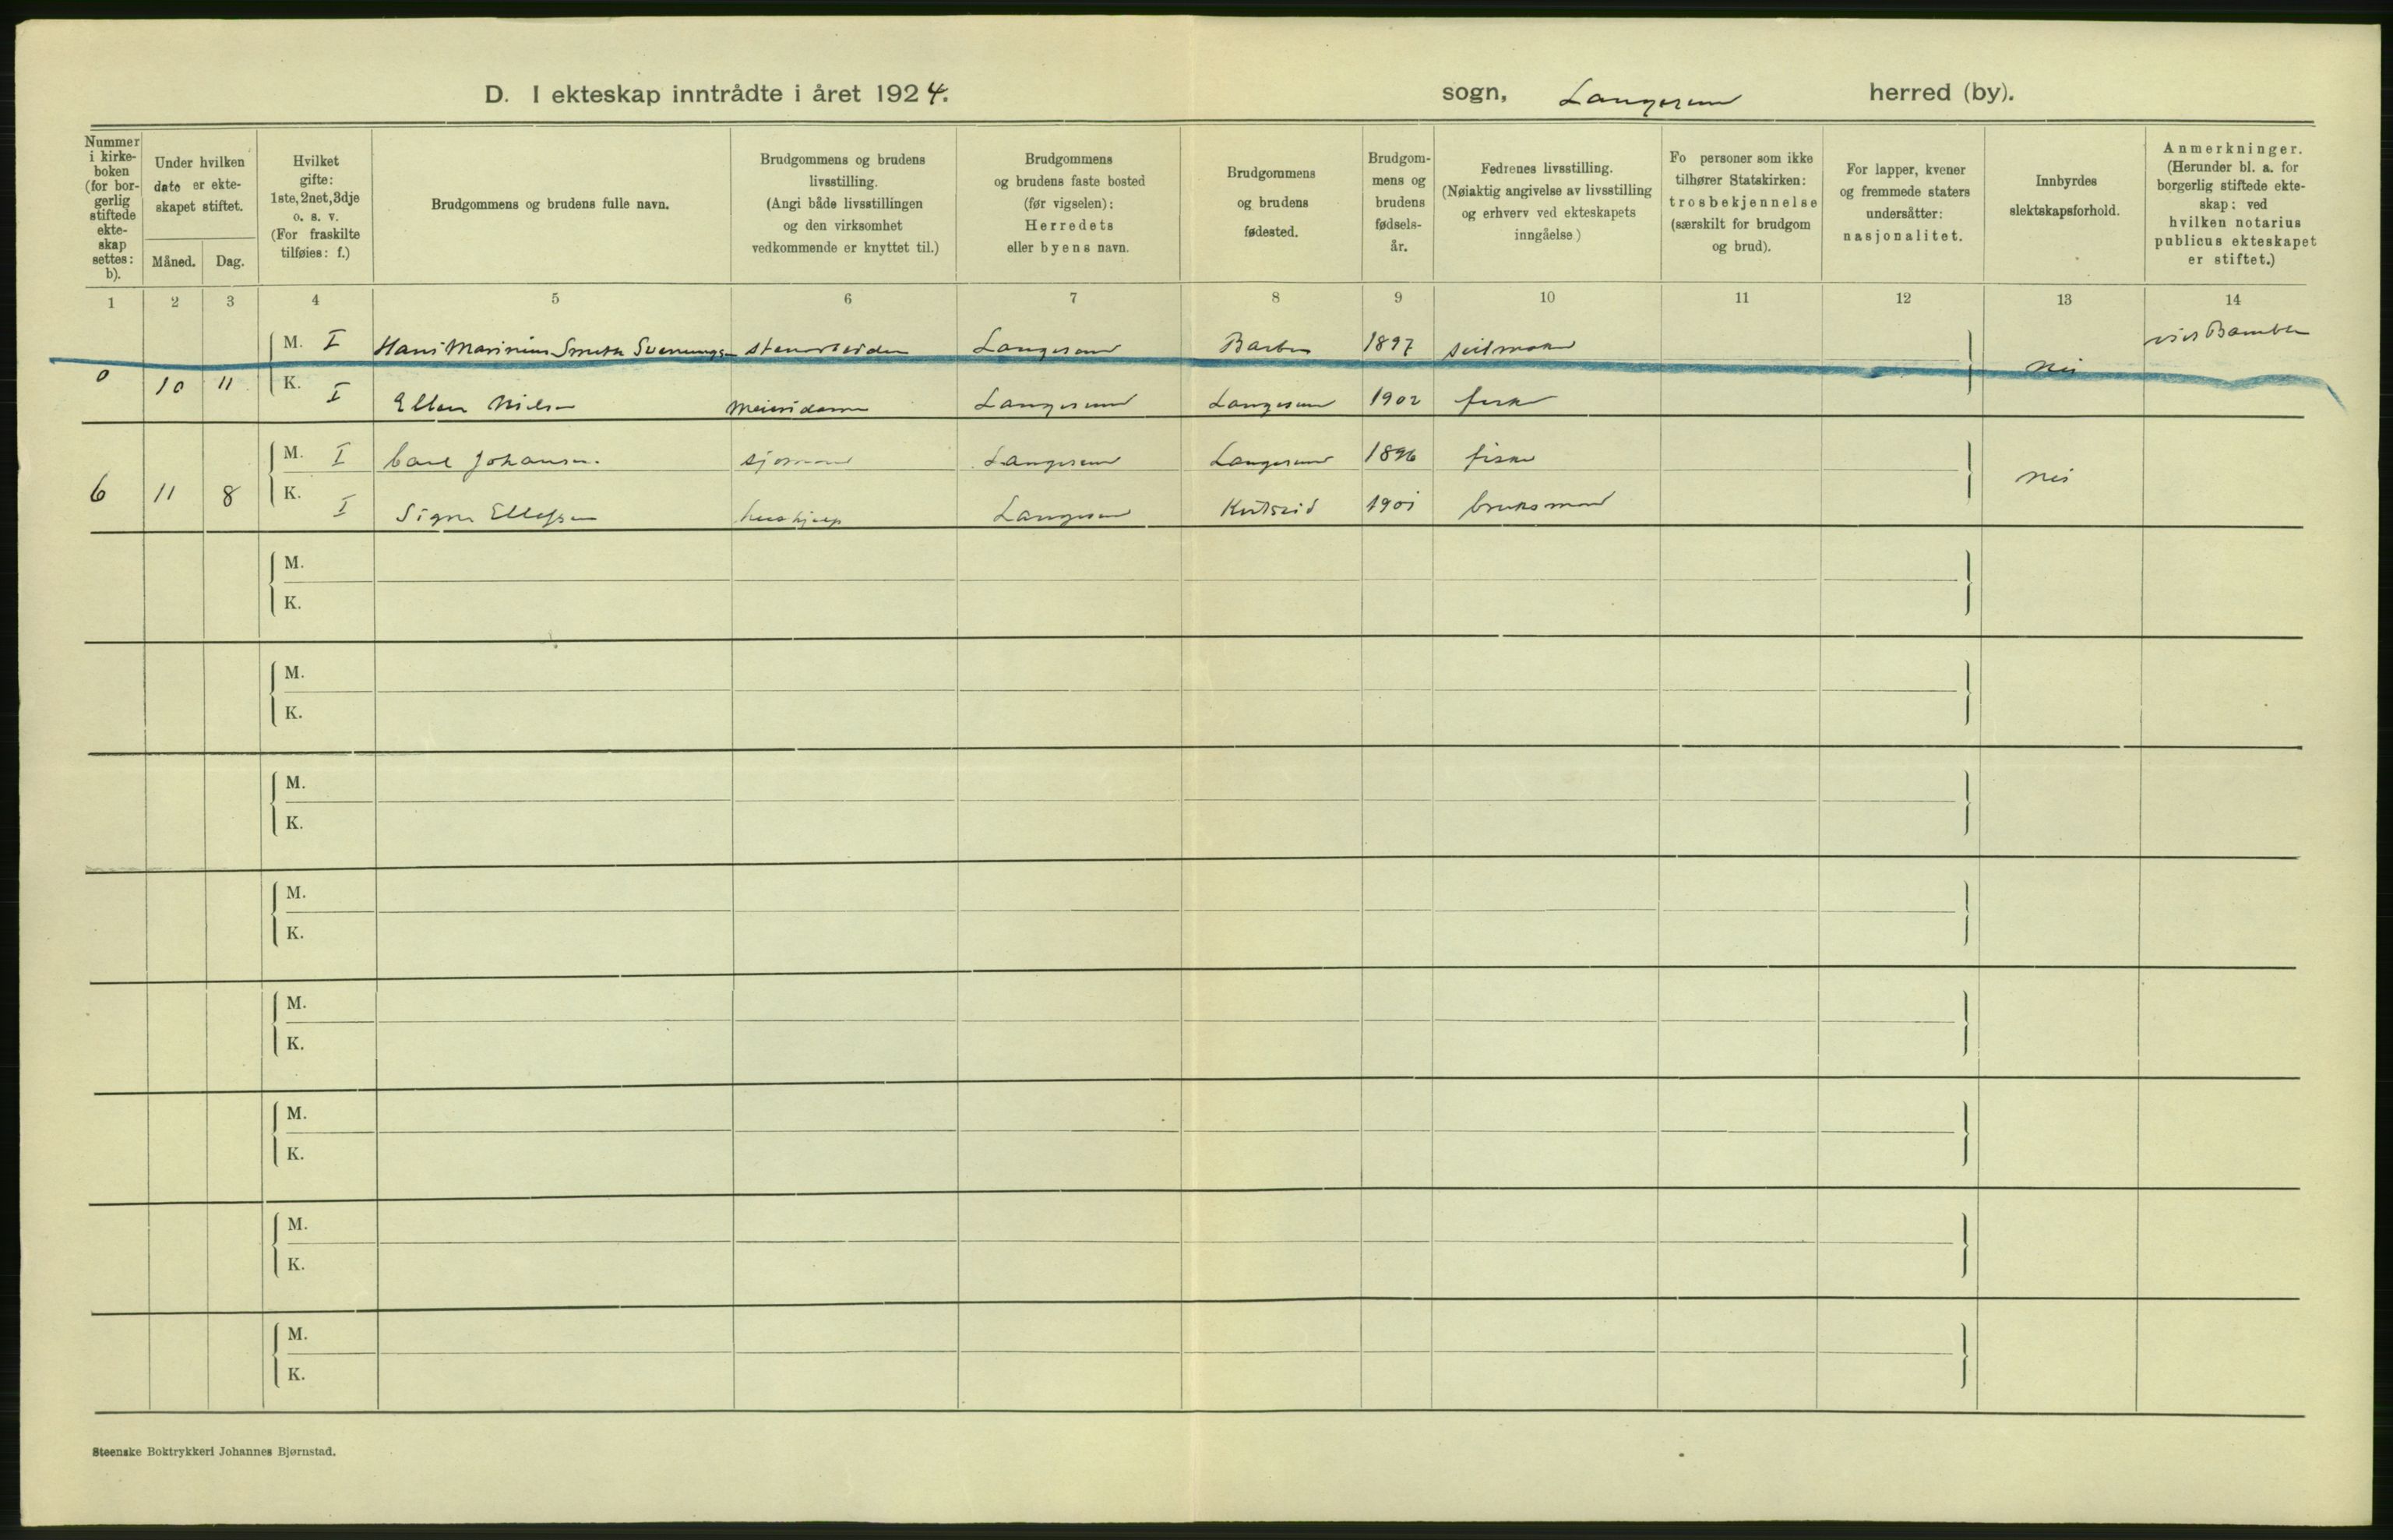 D. I ekteskap inntrådte i året 1924.
sogn, Langesund herred (by).
Nummer
i kirke-
boken
(for bor-
gerlig
stiftede
ekte-
skap
settes:
b).
Under hvilken
dato er ekte-
skapet stiftet.
Måned. Dag.
Hvilket
gifte:
1ste, 2net, 3dje
o. s. v.
(For fraskilte
tilføies: f.)
Brudgommens og brudens fulle navn.
Brudgommens og brudens
livsstilling.
(Angi både livsstillingen
og den virksomhet
vedkommende er knyttet til.)
Brudgommens
og brudens faste bosted
(før vigselen):
Herredets
eller byens navn.
Brudgommens
og brudens
fødested.
Brudgom-
mens og
brudens
fødsels-
år.
Fedrenes livsstilling.
(Nøiaktig angivelse av livsstilling
og erhverv ved ekteskapets
inngåelse)
Fo personer som ikke
tilhører Statskirken:
trosbekjennelse
(særskilt for brudgom
og brud).
For lapper, kvener
og fremmede staters
undersåtter:
nasjonalitet.
Innbyrdes
slektskapsforhold.
Anmerkninger.
(Herunder bl. a. for
borgerlig stiftede ekte-
skap: ved
hvilken notarius
publicus ekteskapet
er stiftet.)
1 2 3 4 5 6 7 8 9 10 11 12 13 14
M. I Hans Marinius Smith Svennungs stenarbeider Langesund Barbu 1897 seilmaker Bamble
0 10 11 K. I Ellen Nielsen Meieridame Langesund Langesund 1902 fisker Nei
M. I Carl Johansen sjømann Langesund Langesund 1896 fisker
6 11 8 K. I Signe Ellefsen hushjelp Langesund 1901 bruksmand Nei
M.
K.
M.
K.
M.
K.
M.
K.
M.
K.
M.
K.
M.
K.
M.
K.
Steenske Boktrykkeri Johannes Bjørnstad.